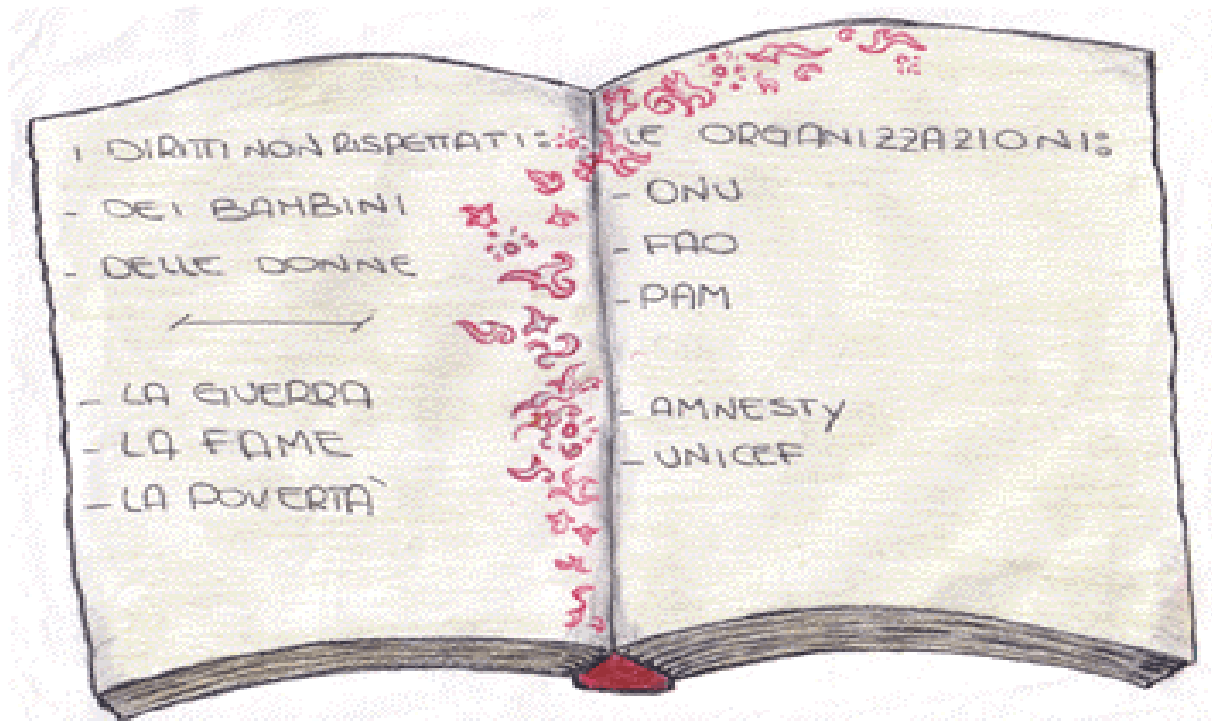 I DIRITTI NON RISPETTATI:
- DEI BAMBINI
- DELLE DONNE
- LA GUERRA
- LA FAME
- LA POVERTÀ
LE ORGANIZZAZIONI:
- ONU
- FAO
- PAM
- AMNESTY
- UNICEF